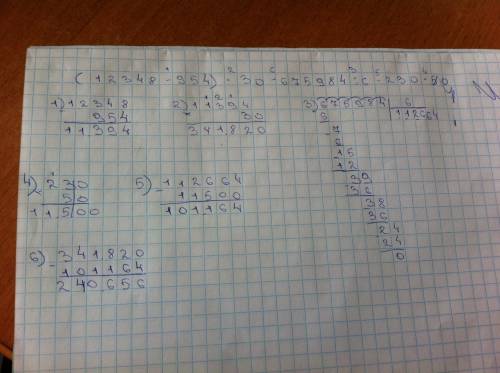 (12348-954)·30-675984:6-230·50
1 2 6 3 5 4
1) 12348
- 954
11394
2) 11394
30
341820
3) 675984 6
112664
6
7
6
15
12
39
36
38
36
24
24
0
4) 230
50
11500
5) -112664
11500
101164
6) -341820
101164
240656